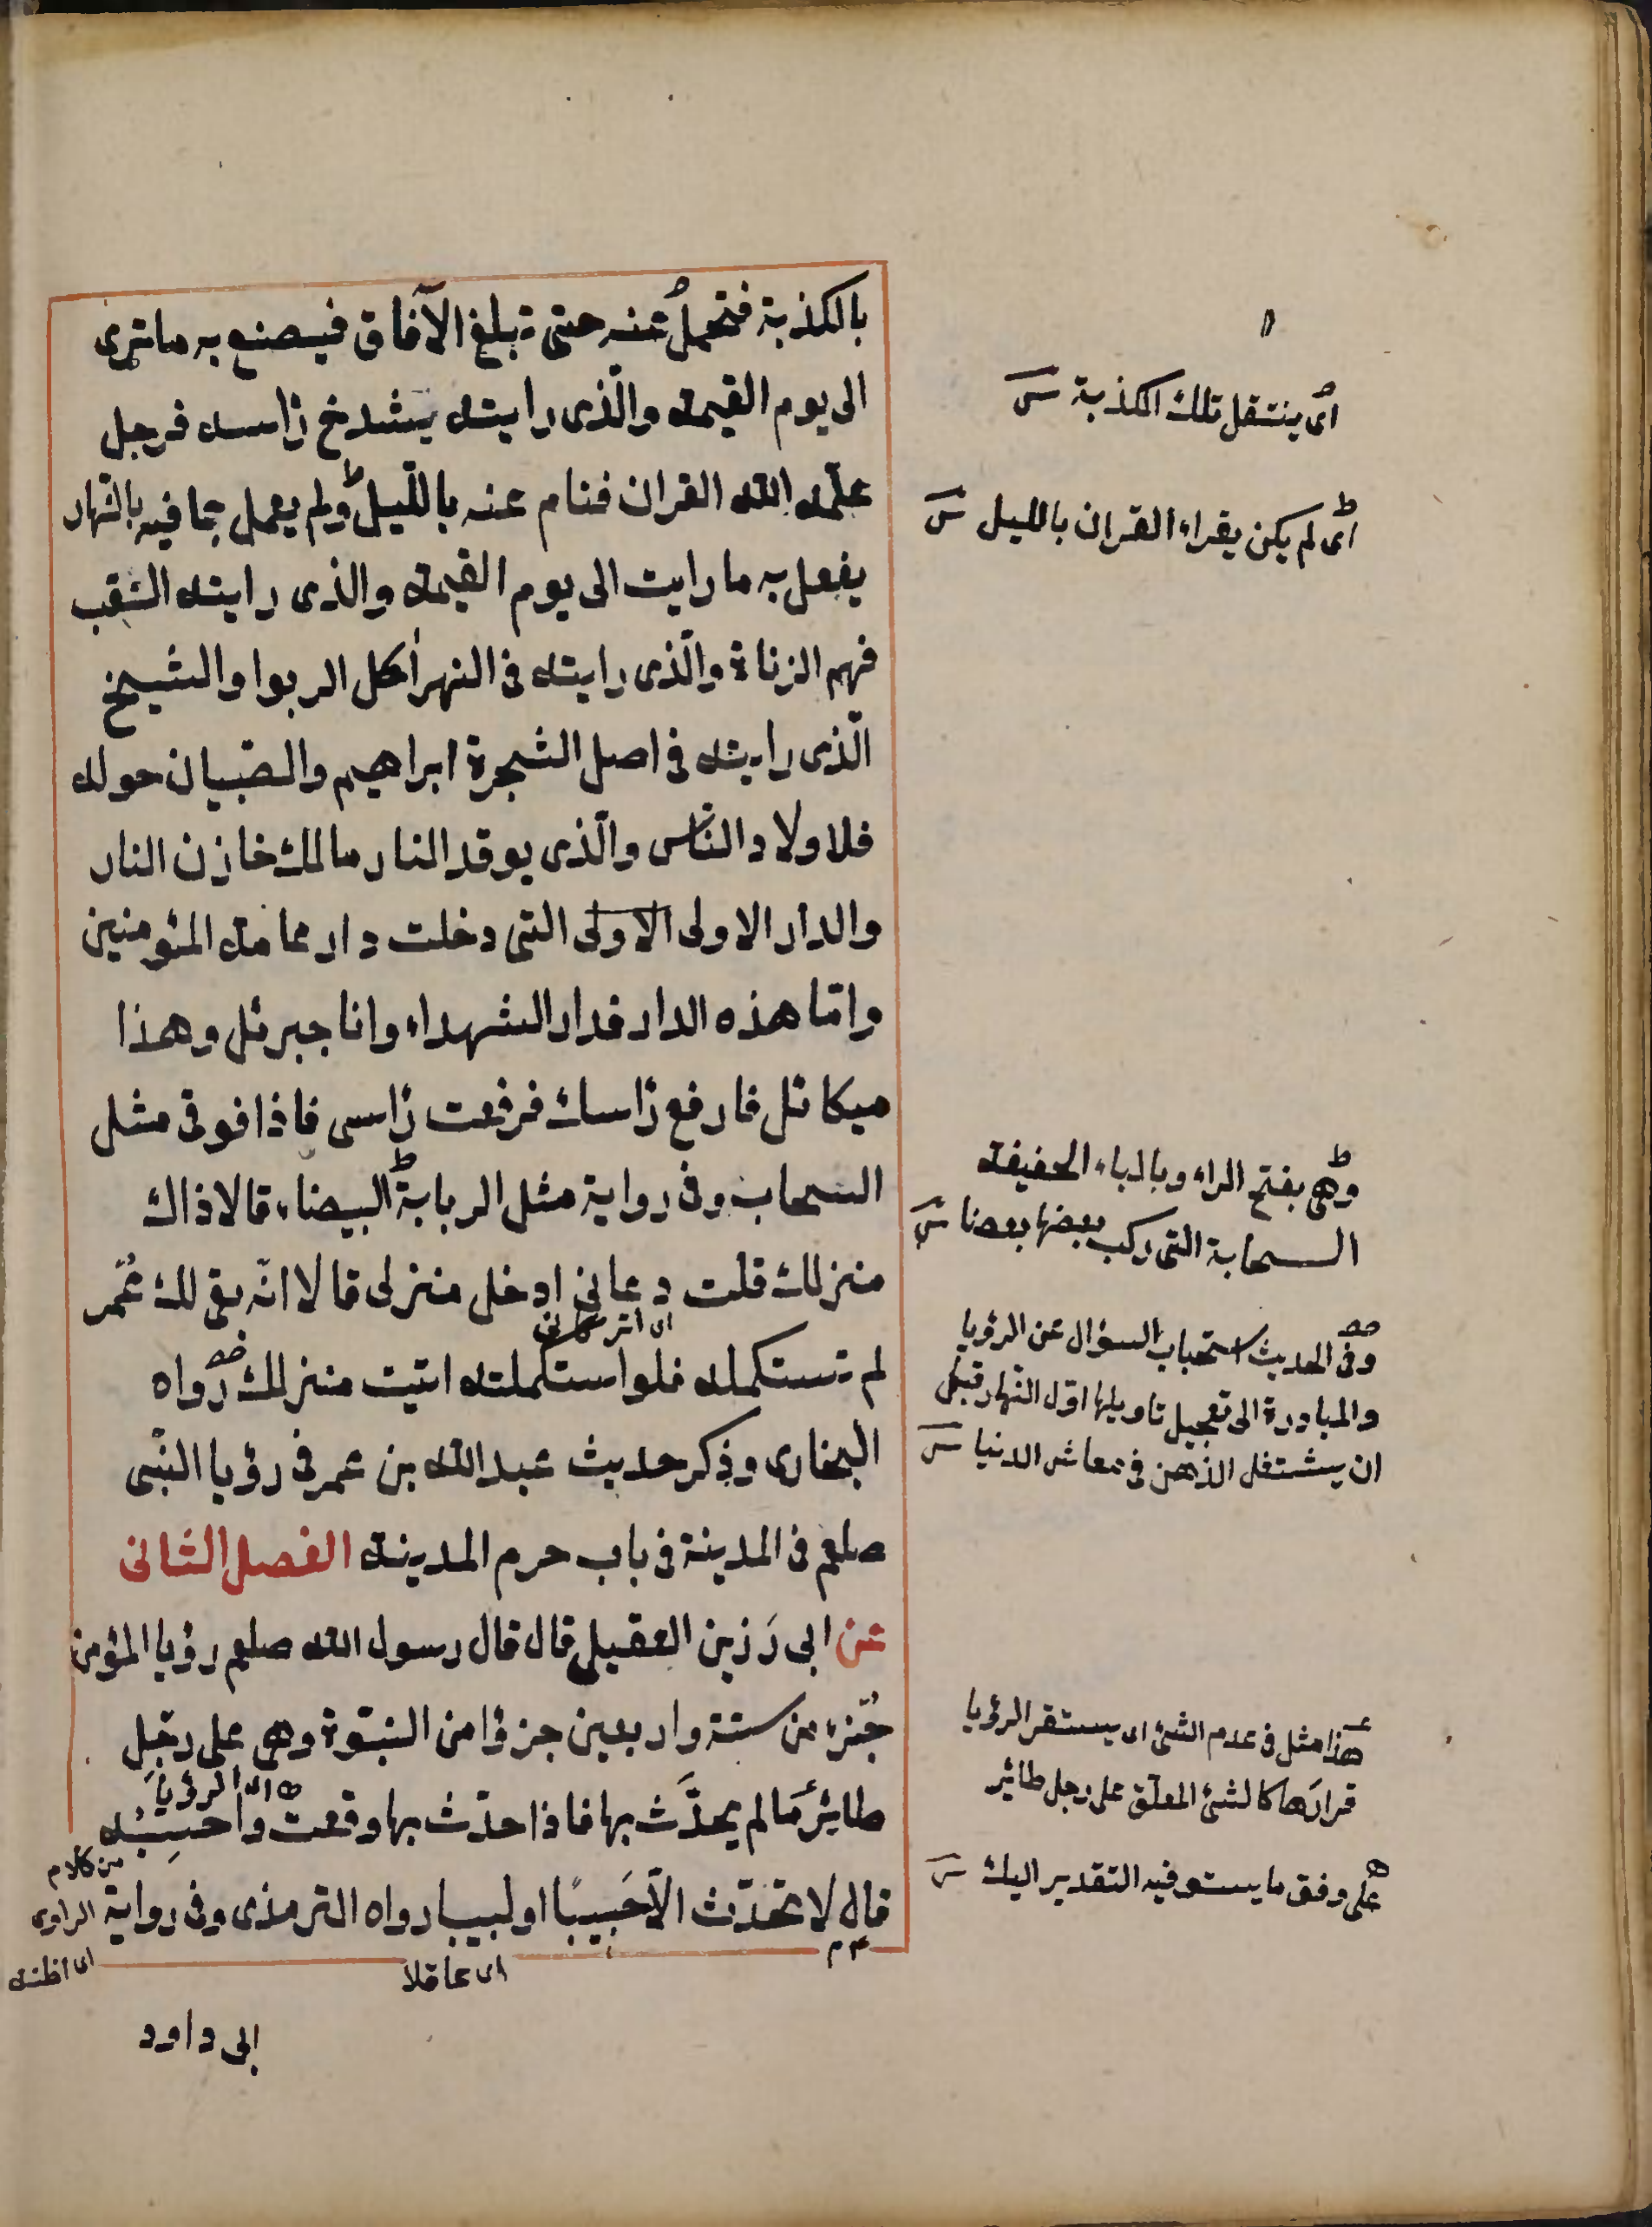 بالكذبة فتحمل عنه حتى تبلغ الآفاق فيصنع به ما ترى
الى يوم القيمة والّذى رايته يشدخ راسه فرجل
علّمه الله القران فنام عنه بالليل ولم يعمل بما فيه بالنهار
يفعل به ما رايت الى يوم القيمة والذى رايته الثقب
فهم الزناة والّذى رايته فى النهر اكل الربوا والشيخ
الّذى رايته فى اصل الشجرة ابراهيم والصبيان حوله
فلاولاد النّاس والّذى يوقد النار مالك خازن النار
والدار الاولى الاولى التى دخلت دار عامة المئومنين
وامّا هذه الدار فدار الشهداء وانا جبرئل وهذا
ميكائل فارفع راسك فرفعت راسى فاذا فوقى مثل
السحاب وفى رواية مثل الربابة البيضاء قالا ذاك
منزلك قلت دعانى ادخل منزلى قالا انّه بقى لك عُمُر
اى اتركانى
لم تستكمله فلو استكملته اتيت منزلك رواه
البخارى وذكر حديث عبد الله بن عمر فى رؤيا النّبى
صلعم فى المدينة فى باب حرم المدينة الفصل الثانى
عن ابى رَزين العقيلى قال قال رسول الله صلعم رؤيا المؤمن
جُزء من ستة واربعين جزؤا من النبّوة وهى على رجل
اى الرؤيا
طائر مَا لم يحدَّث بها فاذا حدّث بها وقعت واحسِبُه
من كلام
قال لا تحدّث الّا حَبِيبًا او لبيبا رواه الترمذى وفى رواية
الراوى
اى اظنه
اى عاقلا
ابى داود
اى ينتقل تلك الكذبة
اى لم يكن يقراء القران بالليل
وهى بفتح الراء وبالباء الخفيفة
السحابة التى ركب بعضها بعضا
وفى الحديث استحباب السؤال عن الرؤيا
والمبادرة الى تعجيل تاويلها اوّل النّهار قبل
ان يشتغل الذهن فى معاش الدنيا
هذا مثل فى عدم الشئ اى يستقر الرؤيا
قرارَها كالشئ المعلّق على رجل طائر
على وفق ما يستو فيه التقدير اليك